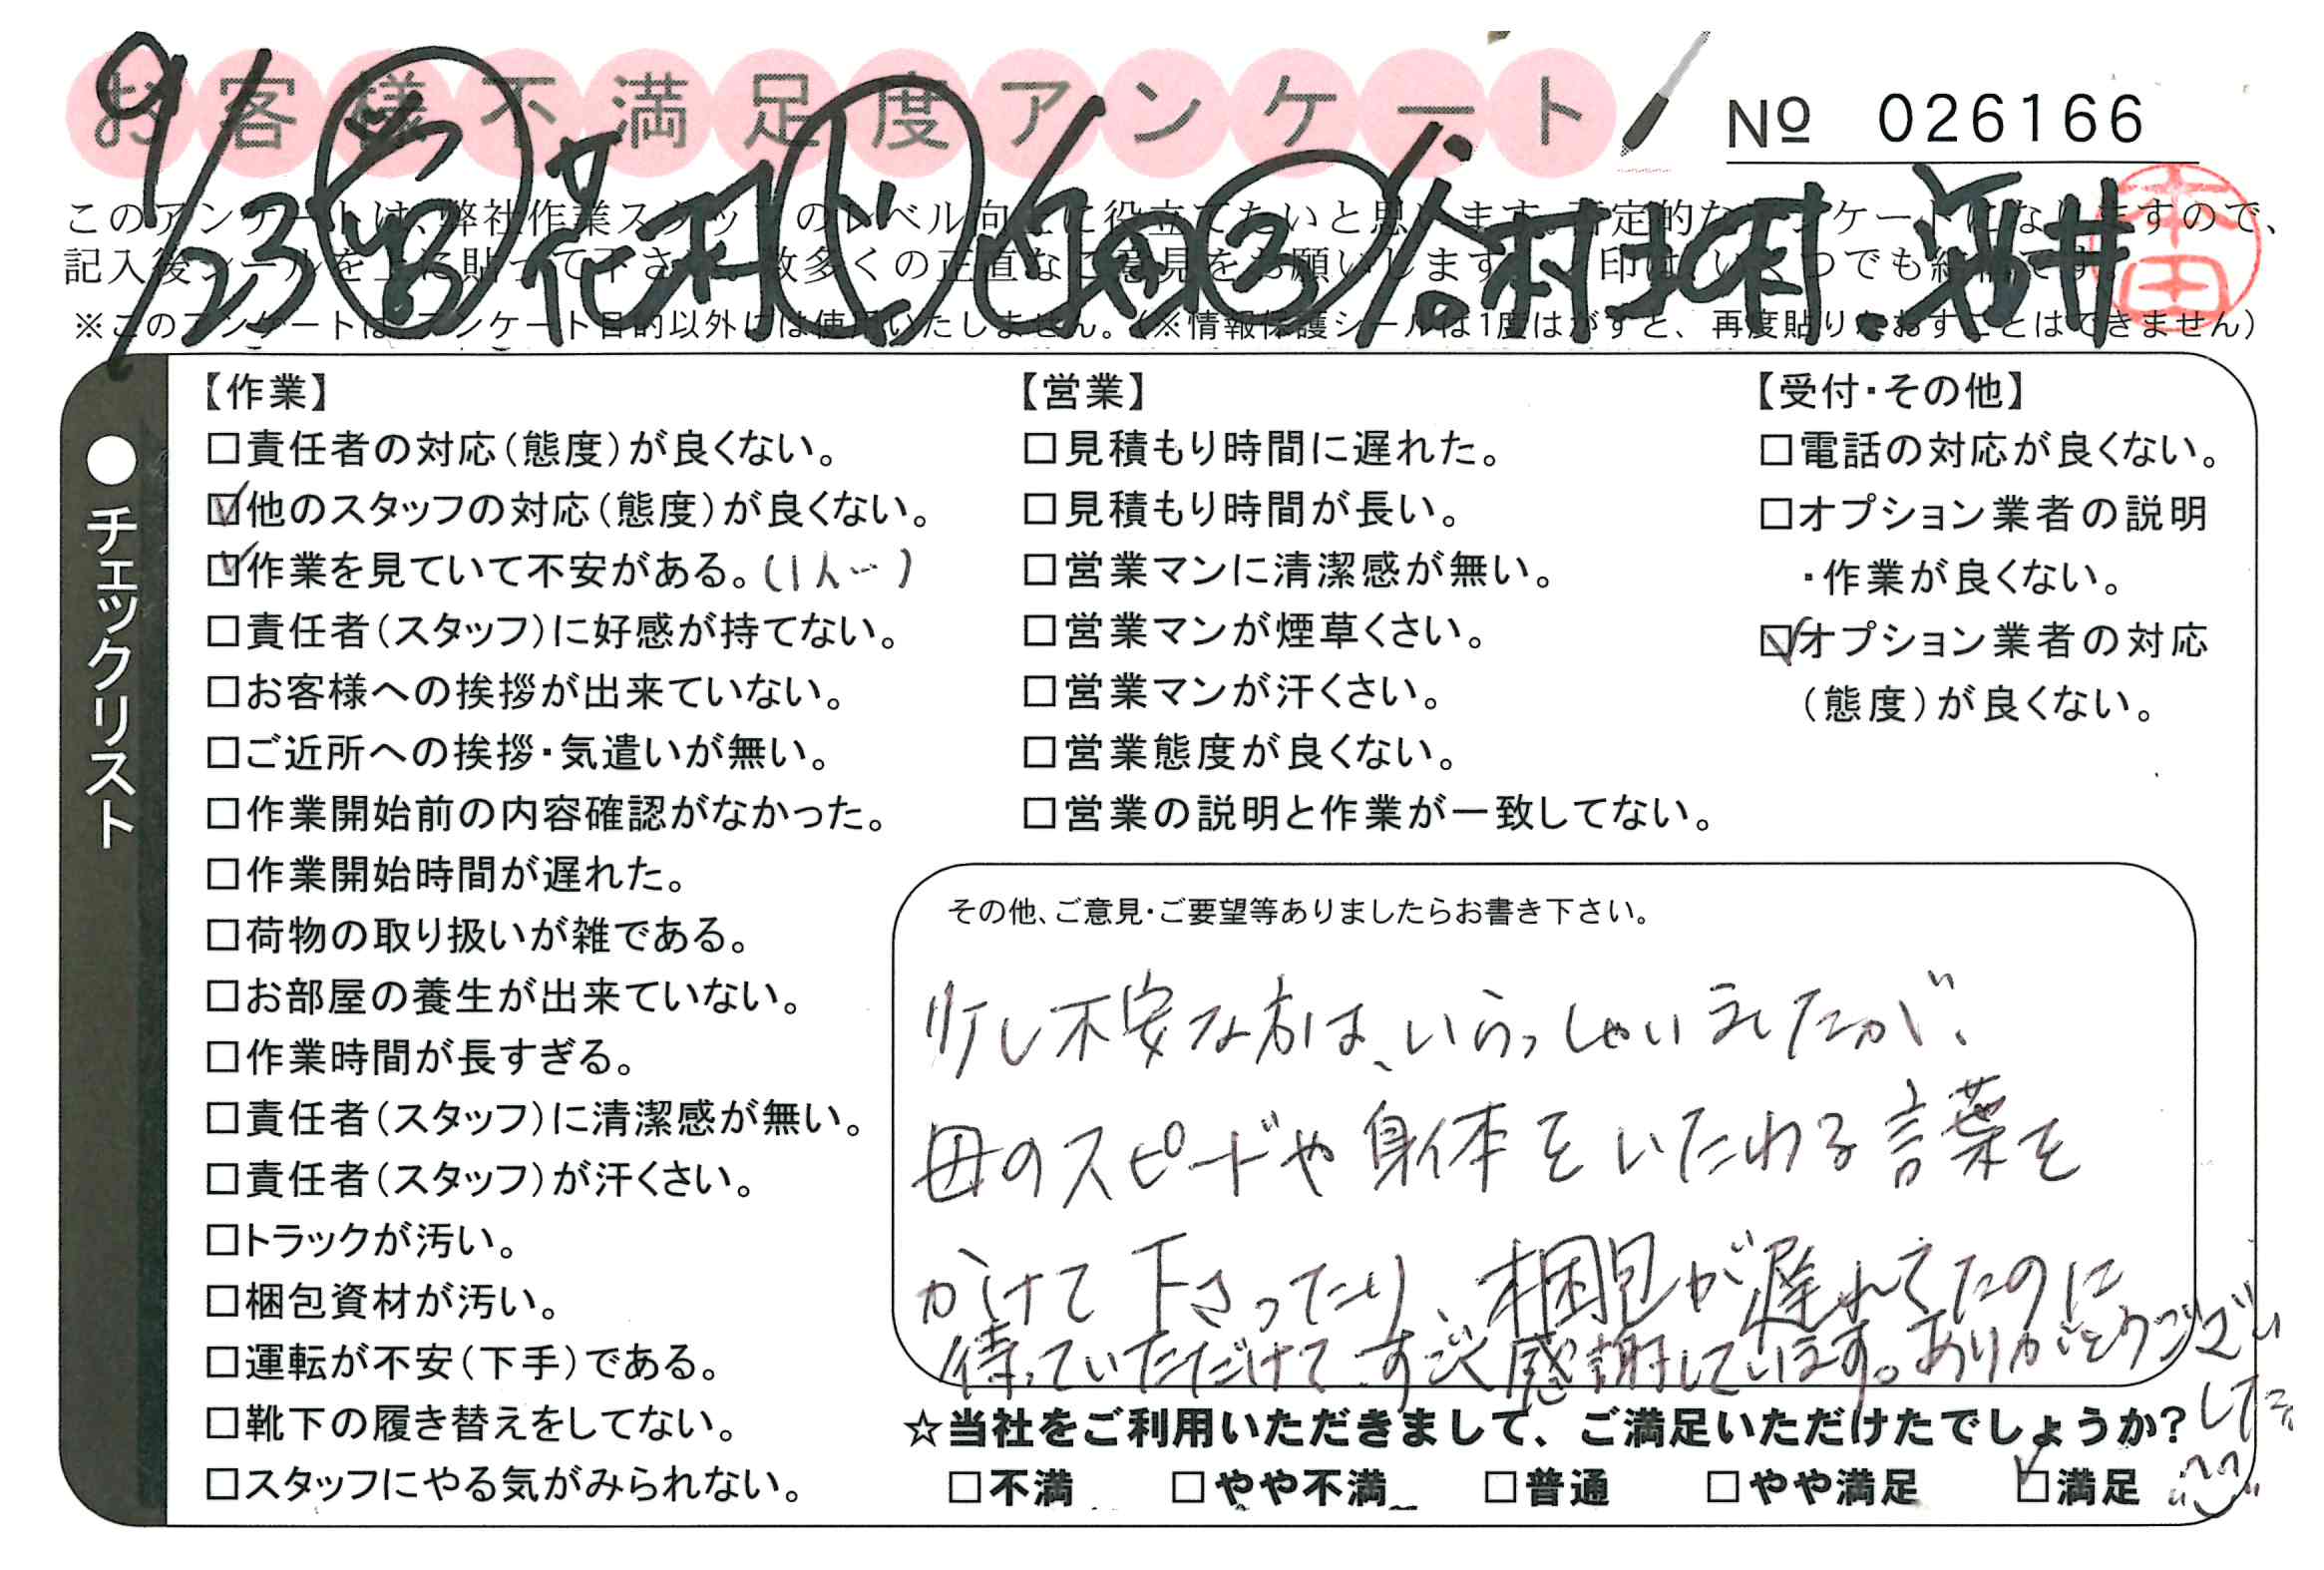 お客様不満足度アンケート
№ 026166
9/23
本田
このアンケートは、弊社作業スタッフのレベル向上に役立てたいと思います。否定的なアンケートになりますので、
記入後シールを上に貼って下さい。数多くの正直なご意見をお願いします。印は、いくつでも結構です。
※このアンケートは、アンケート目的以外には使用いたしません。(※情報保護シールは1度はがすと、再度貼りなおすことはできません)
●チェックリスト
【作業】
□責任者の対応(態度)が良くない。
☑他のスタッフの対応(態度)が良くない。
☑作業を見ていて不安がある。(1人…)
□責任者(スタッフ)に好感が持てない。
□お客様への挨拶が出来ていない。
□ご近所への挨拶・気遣いが無い。
□作業開始前の内容確認がなかった。
□作業開始時間が遅れた。
□荷物の取り扱いが雑である。
□お部屋の養生が出来ていない。
□作業時間が長すぎる。
□責任者(スタッフ)に清潔感が無い。
□責任者(スタッフ)が汗くさい。
□トラックが汚い。
□梱包資材が汚い。
□運転が不安(下手)である。
□靴下の履き替えをしてない。
□スタッフにやる気がみられない。
【営業】
□見積もり時間に遅れた。
□見積もり時間が長い。
□営業マンに清潔感が無い。
□営業マンが煙草くさい。
□営業マンが汗くさい。
□営業態度が良くない。
□営業の説明と作業が一致してない。
【受付・その他】
□電話の対応が良くない。
□オプション業者の説明
・作業が良くない。
☑オプション業者の対応
(態度)が良くない。
その他、ご意見・ご要望等ありましたらお書き下さい。
少し不安な方は、いらっしゃいましたが、
母のスピードや身体をいたわる言葉を
かけて下さったり、梱包が遅れてたのに
待っていただけてすごく感謝しています。ありがとうございま
した
☆当社をご利用いただきまして、ご満足いただけたでしょうか?
□不満 □やや不満 □普通 □やや満足 ☑満足